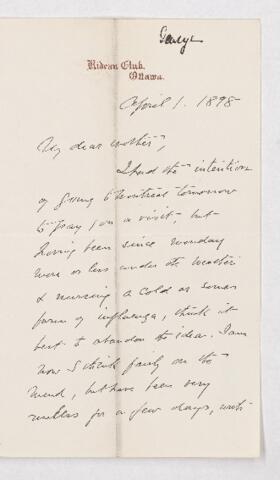 George
Rideau Club,
Ottawa.
April 1. 1898
My dear mother,
I had the intention
of going to Montreal tomorrow
to pay you a visit, but
having been since monday
more or less under the weather
& nursing a cold or some
form of influenza, think it
best to abandon the idea. I am
now I think fairly on the
mend, but have been very
for a few days, with